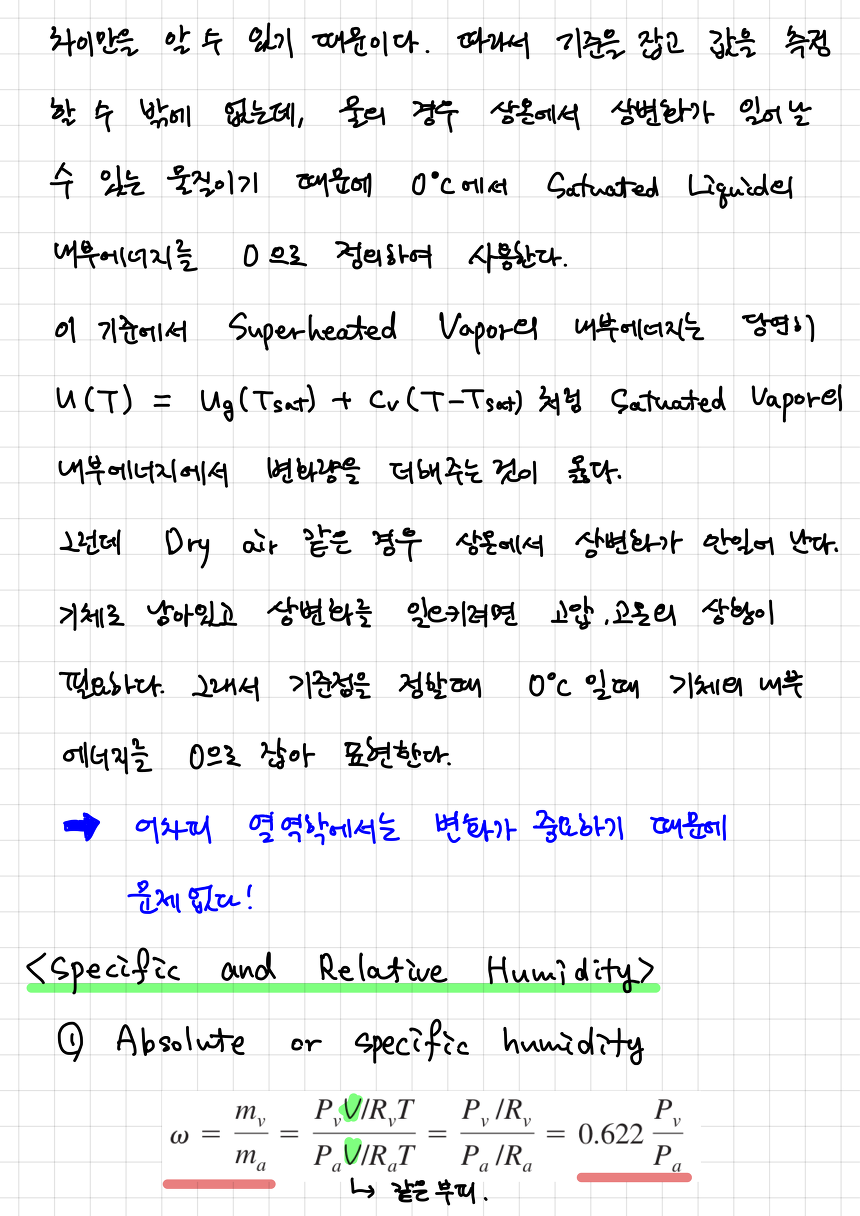 차이만을 알 수 있기 때문이다. 따라서 기준을 잡고 값을 측정
할 수 밖에 없는데, 물의 경우 상온에서 상변화가 일어날
수 있는 물질이기 때문에 0°C에서 Satuated Liquid의
내부에너지를 0으로 정의하여 사용한다.
이 기준에서 Superheated Vapor의 내부에너지는 당연히
U(T) = Ug(Tsat) + Cv(T-Tsat) 처럼 Satuated Vapor의
내부에너지에서 변화량을 더해주는 것이 옳다.
그런데 Dry air 같은 경우 상온에서 상변화가 안일어 난다.
기체로 남아있고 상변화를 일으키려면 고압,고온의 상황이
필요하다. 그래서 기준점을 정할때 0°C 일때 기체의 내부
에너지를 0으로 잡아 표현한다.
➡ 어차피 열역학에서는 변화가 중요하기 때문에
문제없다!
<Specific and Relative Humidity>
① Absolute or specific humidity
ω = m_v/m_a = (P_v V/R_v T)/(P_a V/R_a T) = (P_v/R_v)/(P_a/R_a) = 0.622 P_v/P_a
↳ 같은 부피.